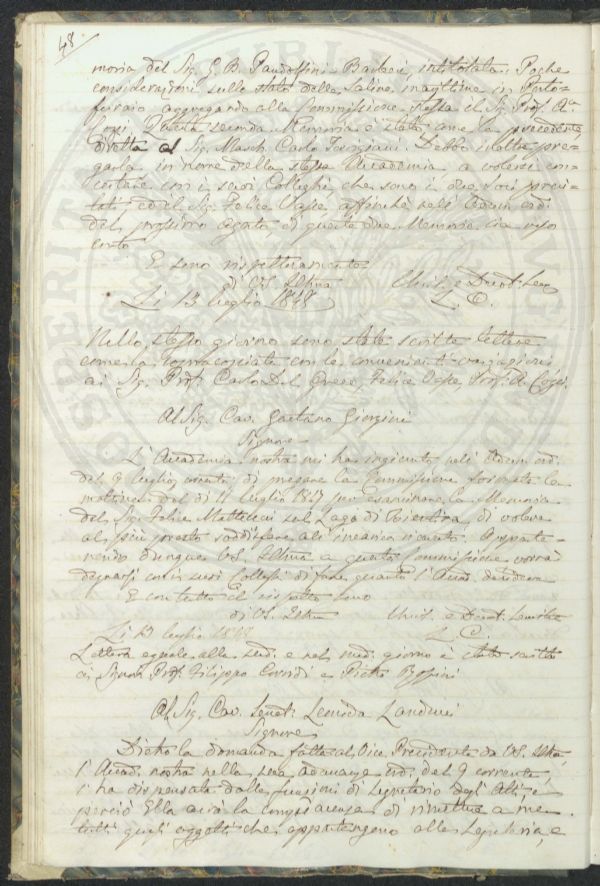 48
moria del Sig. G. B. Pandolfini Barberi, intitolata: Poche
considerazioni sullo stato delle Saline marittime in Porto-
ferraio aggregando alla Commissione stessa il Sig. Prof.
Questa seconda Memoria è stata, come la precedente
diretta al Sig. March. Carlo Torrigiani. Debbo inoltre pre-
garla in nome della stessa Accademia a volersi con-
certare con i suoi Colleghi, che sono i due soci
ed il Sig. Felice Vasse, affinchè nell' Adun. ord.
del prossimo Agosto di queste due Memorie sia
conto
E sono rispettosamente
di VS. Illma
Umil. e Devot. Serv
Li 13 luglio 1848
L. C.
Nello stesso giorno sono state scritte lettere
come la sopracopiata con le convenienti variazioni
ai Sig. Prof. Carlo Del Greco, Felice Vasse, Prof. A.
Al Sig. Cav. Gaetano Giorgini
Signore
L' Accademia nostra mi ha ingiunto nell' Adun. ord.
del 9 luglio corrente di pregare la Commissione formata la
mattina del dì 11 luglio 1847 per esaminare la Memoria
del Sig. Felice Matteucci sul Lago di Bientina, di volere
al più presto soddisfare all' incarico ricevuto. Apparte-
nendo dunque VS. Illma a questa Commissione vorrà
degnarsi con i suoi Colleghi di fare quanto l' Accad. desidera
E con tutto il rispetto sono
di VS. Illma
Umil. e Devot. Servitore
Li 13 luglio 1848
L. C.
Lettera eguale alla sud. e nel med. giorno è stata scritta
ai Signori Prof. Filippo Corridi e Pietro
Al Sig. Cav. Senat. Leonida Landucci
Signore
Dietro la domanda fatta al Vice Presidente da VS. Illma,
l' Accad. nostra nella sua adunanza ord. del 9 corrente,
l' ha dispensata dalle funzioni di Segretario degli Atti e
perciò Ella avrà la compiacenza di rimettere a me
tutti quegli oggetti che appartengono alla Segreteria, e